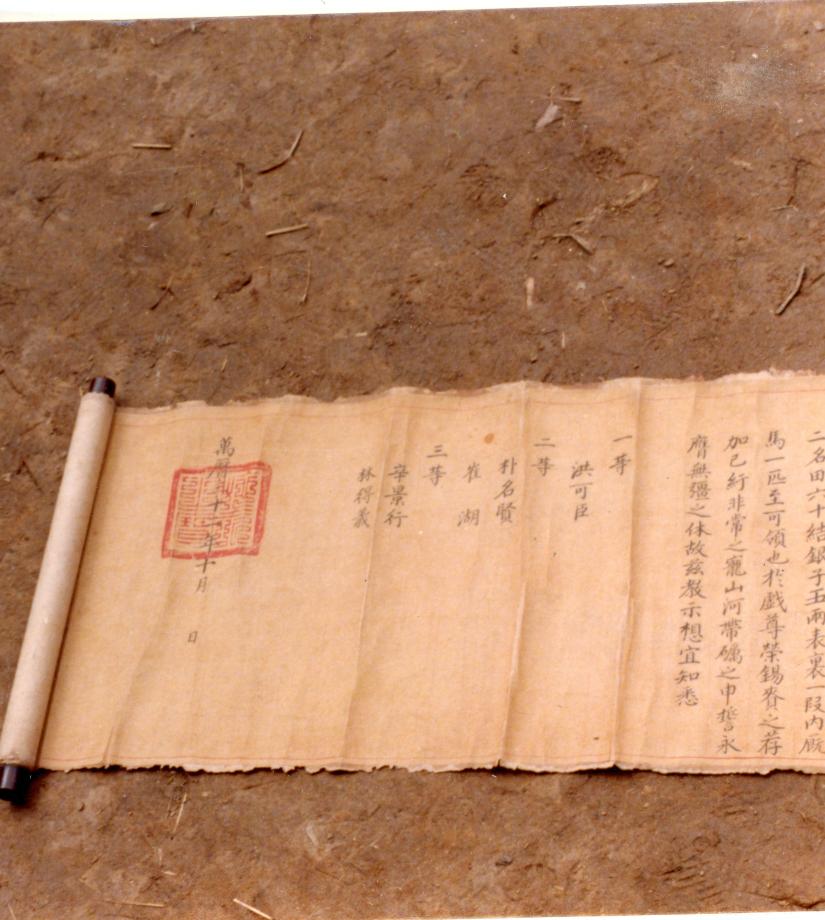 二名田六十結銀子五兩表裏一段內廐
馬一匹至可領也於戱尊榮錫賚之荐
加已紆非常之寵山河帶礪之申誓永
膺無疆之休故玆敎示想宜知悉
一等
洪可臣
二等
朴名賢
崔 湖
三等
辛景行
林得義
萬曆三十二年十月 日